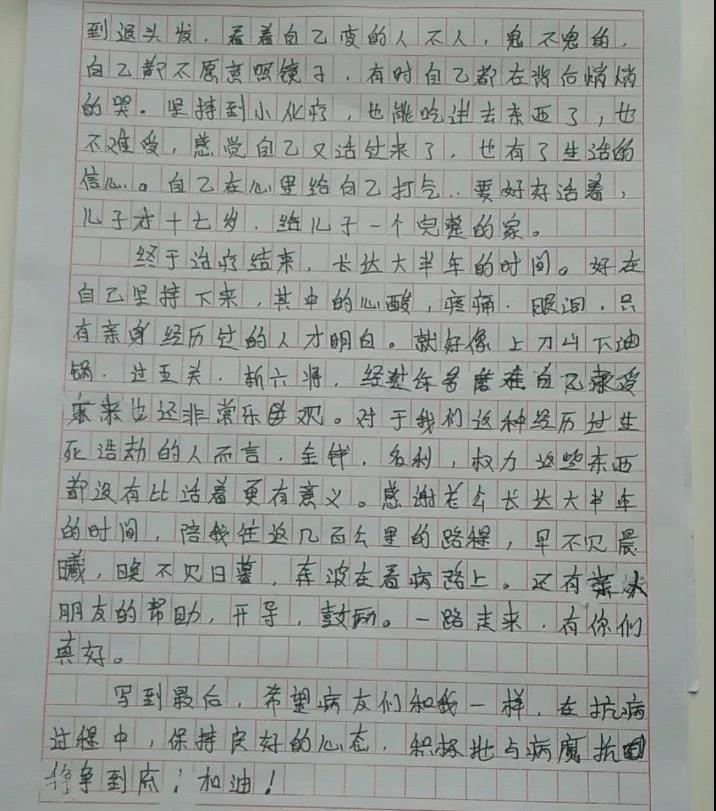 到退头发，看着自己变的人不人，鬼不鬼的，
自己都不愿意照镜子，有时自己都在背后悄悄
的哭。坚持到小化疗，也能吃进去东西了，也
不难受，感觉自己又活过来了，也有了生活的
信心。自己在心里给自己打气，要好好活着，
儿子才十七岁，给儿子一个完整的家。
终于治疗结束，长达大半年的时间。好在
自己坚持下来，其中的心酸，疼痛，眼泪，只
有亲身经历过的人才明白。就好像上刀山下油
锅，过五关，斩六将，经 磨难自己
来 还非常乐观。对于我们这种经历过生
死浩劫的人而言，金钱，名利，权力这些东西
都没有比活着更有意义。感谢老公长达大半年
的时间，陪我往返几百公里的路程，早不见晨
曦，晚不见日暮，奔波在看病路上。还有家人
朋友的帮助，开导，鼓励。一路走来，有你们
真好。
写到最后，希望病友们和我一样，在抗病
过程中，保持良好的心态，积极地与病魔抗
争到底！加油！